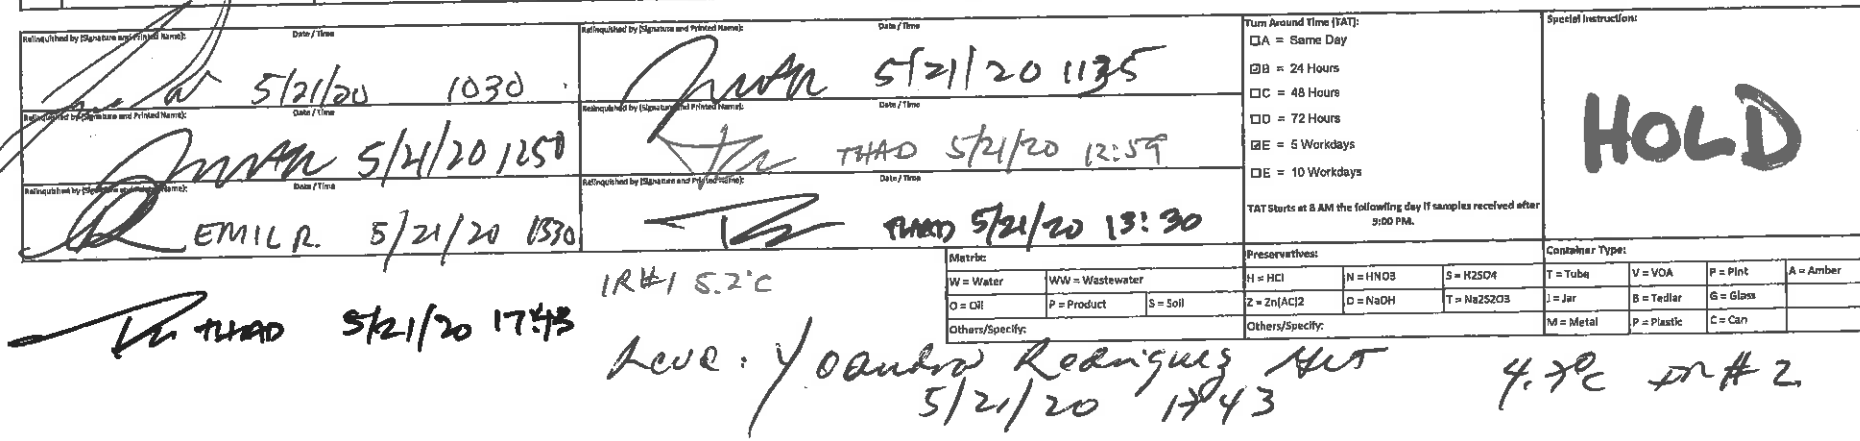 Relinquished by (Signature and Printed Name): Date / Time
5/21/20 1030
Relinquished by (Signature and Printed Name): Date / Time
5/21/20 1135
Relinquished by (Signature and Printed Name): Date / Time
5/21/20 1250
Relinquished by (Signature and Printed Name): Date / Time
THAD 5/21/20 12:59
Relinquished by (Signature and Printed Name): Date / Time
EMIL R. 5/21/20 1330
Relinquished by (Signature and Printed Name): Date / Time
THAD 5/21/20 13:30
Turn Around Time (TAT):
☐A = Same Day
☑B = 24 Hours
☐C = 48 Hours
☐D = 72 Hours
☑E = 5 Workdays
☐E = 10 Workdays
TAT Starts at 8 AM the following day if samples received after
5:00 PM.
Special Instruction:
HOLD
IR#1 5.2°C
THAD 5/21/20 17:43
Matrix:
W = Water WW = Wastewater
O = Oil P = Product S = Soil
Others/Specify:
Preservatives:
H = HCl N = HNO3 S = H2SO4
Z = Zn(AC)2 O = NaOH T = Na2S2O3
Others/Specify:
Container Type:
T = Tube V = VOA P = Pint A = Amber
J = Jar B = Tedlar G = Glass
M = Metal P = Plastic C = Can
Recvd: Yoandra Rodriguez
5/21/20 1743
4.7°C IR # 2